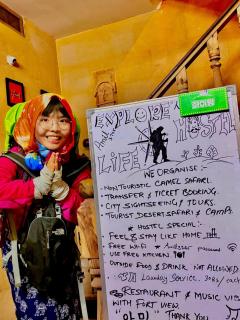 EXPLORE
HOSTEL
LIFE
WE ORGANISE :-
NON TOURISTIC CAMEL SAFARI.
TRANSFER & TICKET BOOKING.
CITY SIGHTSEEING / TOURS.
TOURIST DESERT SAFARI & CAMP.
* HOSTEL SPECIAL :-
FEEL & STAY LIKE HOME
FREE WiFi
USE FREE KITCHEN
OUTSIDE FOOD & DRINK NOT ALLOWED.
Laundry Service
RESTAURANT & MUSIC
WITH FORT VIEW.
THANK YOU